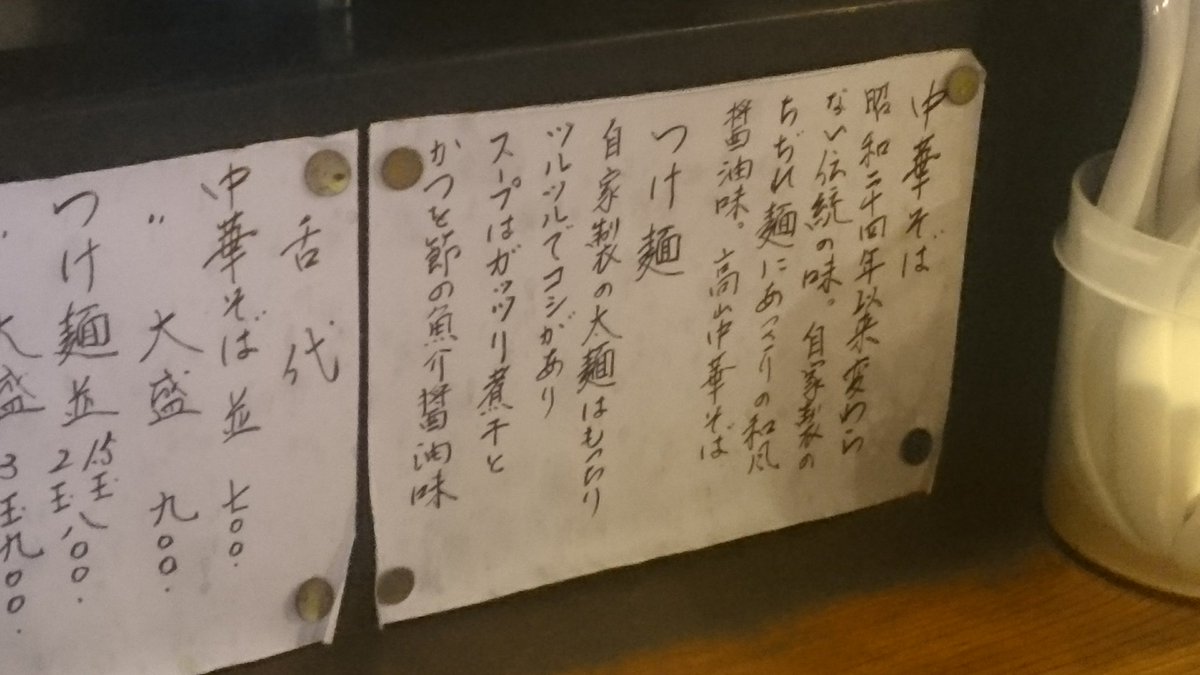 中華そば
昭和二十四年以来変わら
ない伝統の味。自家製の
ちぢれ麺にあっさりの和風
醤油味。高山中華そば
つけ麺
自家製の太麺はもっちり
ツルツルでコシがあり
スープはガッツリ煮干と
かつを節の魚介醤油味
舌代
中華そば並 七〇〇.
〃 大盛 九〇〇.
つけ麺並 1.5玉 2玉 八〇〇.
〃 大盛 3玉 九〇〇.